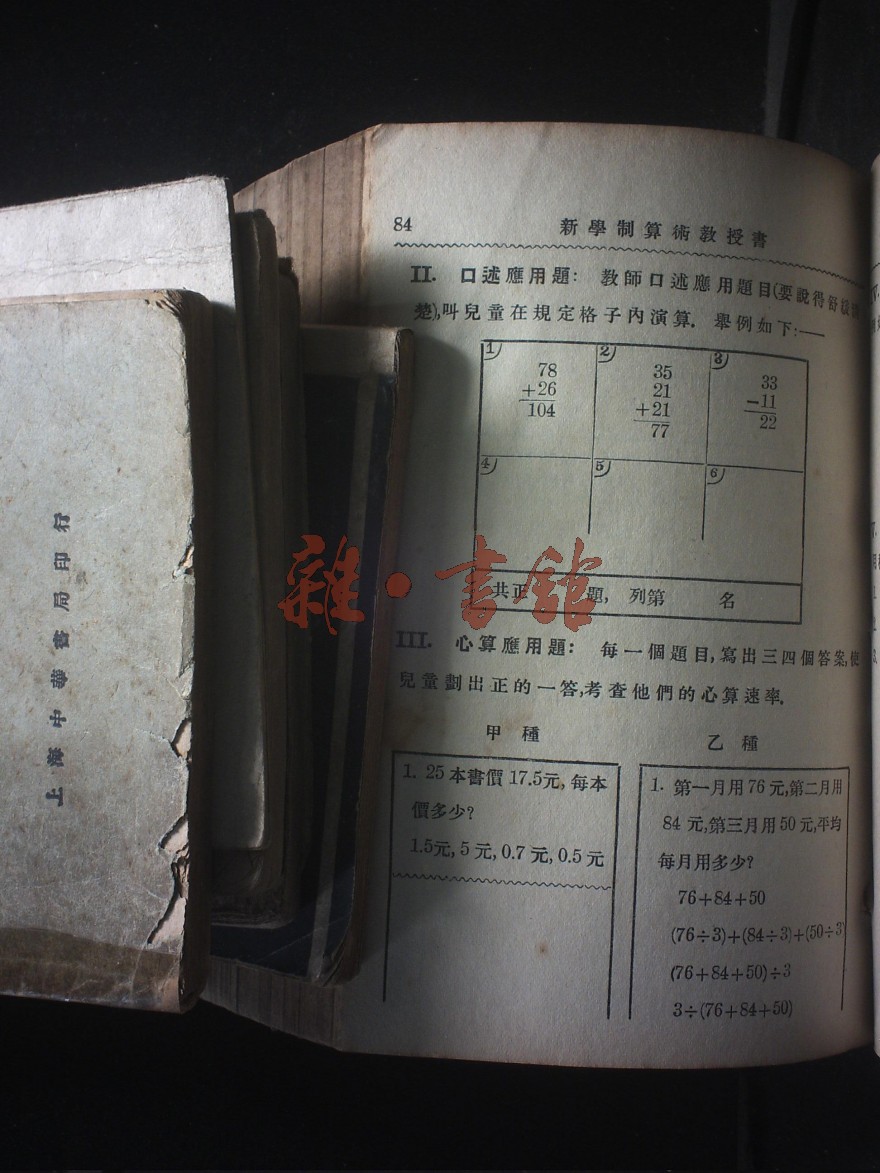 上海中華書局印行
雜·書館
84 新學制算術教授書
II. 口述應用題: 教師口述應用題目(要說得舒緩
楚),叫兒童在規定格子內演算. 舉例如下:——
1 2 3
78 35 33
+26 21 −11
104 +21 22
77
4 5 6
共正 題, 列第 名
III. 心算應用題: 每一個題目,寫出三四個答案,使
兒童劃出正的一答,考查他們的心算速率.
甲種
1. 25本書價17.5元,每本
價多少?
1.5元,5元,0.7元,0.5元
乙種
1. 第一月用76元,第二月用
84元,第三月用50元,平均
每月用多少?
76+84+50
(76÷3)+(84÷3)+(50÷3
(76+84+50)÷3
3÷(76+84+50)